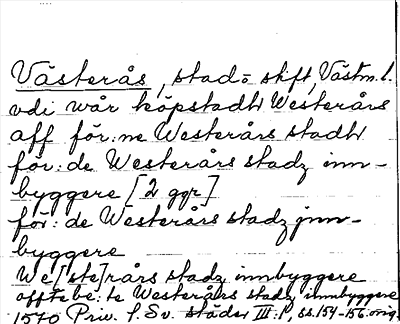 Västerås, stad o skift, Västm.l.
vdi wår köpstadh Westerårs
aff för:ne Westerårs stadh
för:de Westerårs stadz inn-
byggere [2 ggr]
för:de Westerårs stadz jnn-
byggere
We[ste]rårs stadz innbyggere
offtebe:te Westerårs stadz innbyggere
1570 Priv. f. Sv. städer III:P, ss.154-156.orig.